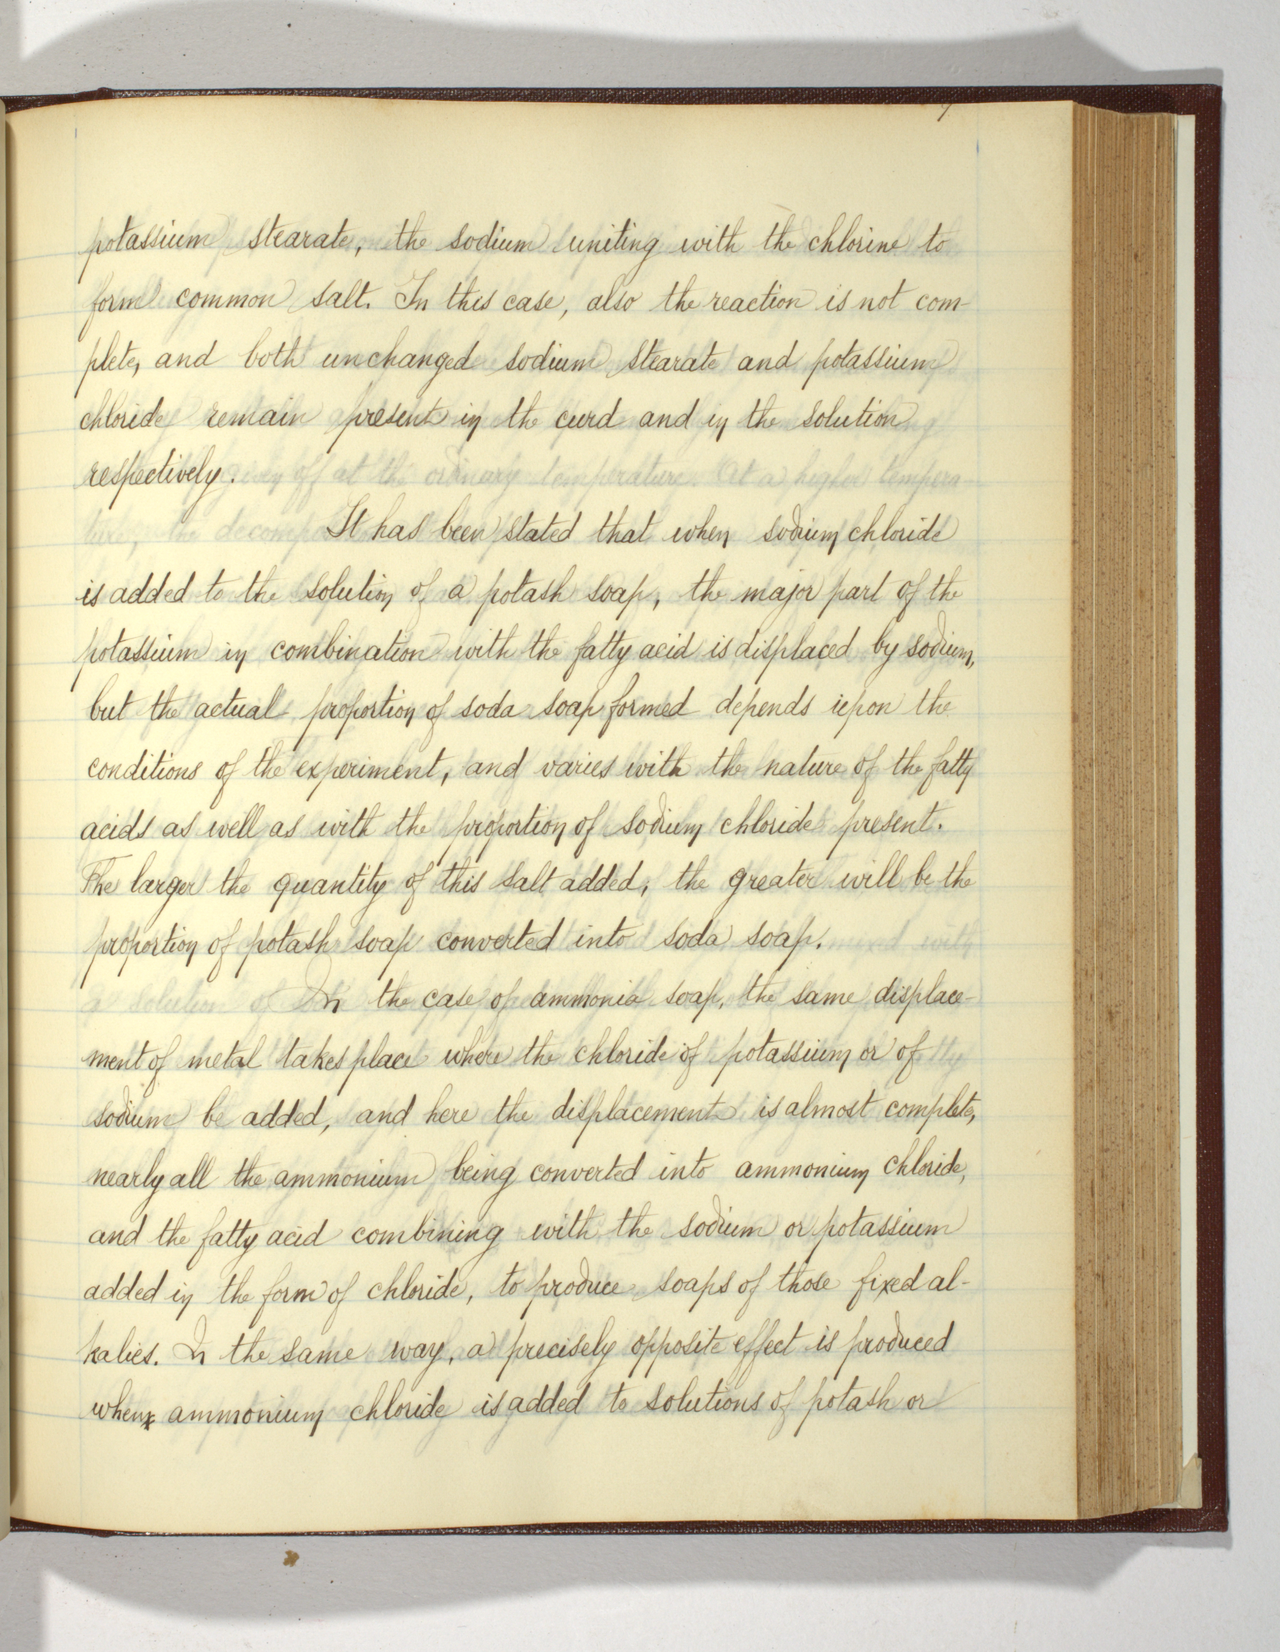 potassium stearate, the sodium uniting with the chlorine to
form common salt. In this case, also the reaction is not com-
plete, and both unchanged sodium stearate and potassium
chloride remain present in the curd and in the solution
respectively.
It has been stated that when sodium chloride
is added to the solution of a potash soap, the major part of the
potassium in combination with the fatty acid is displaced by sodium,
but the actual proportion of soda soap formed depends upon the
conditions of the experiment, and varies with the nature of the fatty
acids as well as with the proportion of sodium chloride present.
The larger the quantity of this salt added, the greater will be the
proportion of potash soap converted into soda soap.
In the case of ammonia soap, the same displace-
ment of metal takes place where the chloride of potassium or of
sodium be added, and here the displacement is almost complete,
nearly all the ammonium being converted into ammonium chloride,
and the fatty acid combining with the sodium or potassium
added in the form of chloride, to produce soaps of those fixed al-
kalies. In the same way, a precisely opposite effect is produced
when ammonium chloride is added to solutions of potash or